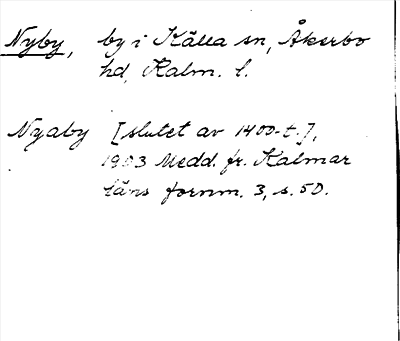 Nyby, by i Källa sn, Åkerbo
hd, Kalm. l.
Nyaby [slutet av 1400-t.],
1903 Medd. fr. Kalmar
läns fornm. 3, s. 50.